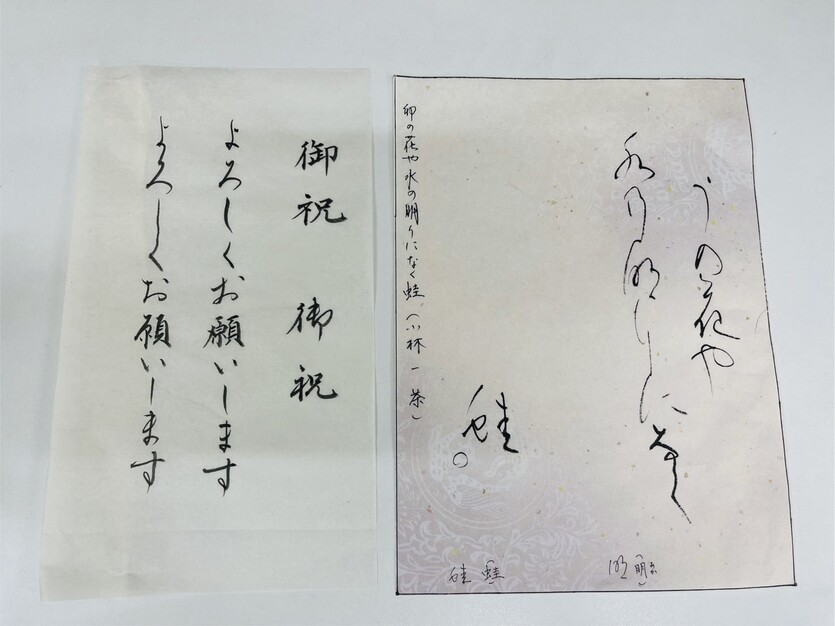 うの花や
水乃明りになく
蛙
卯の花や水の明りになく蛙。(小林一茶)
蛙 蛙
御祝 御祝
よろしくお願いします
よろしくお願いします